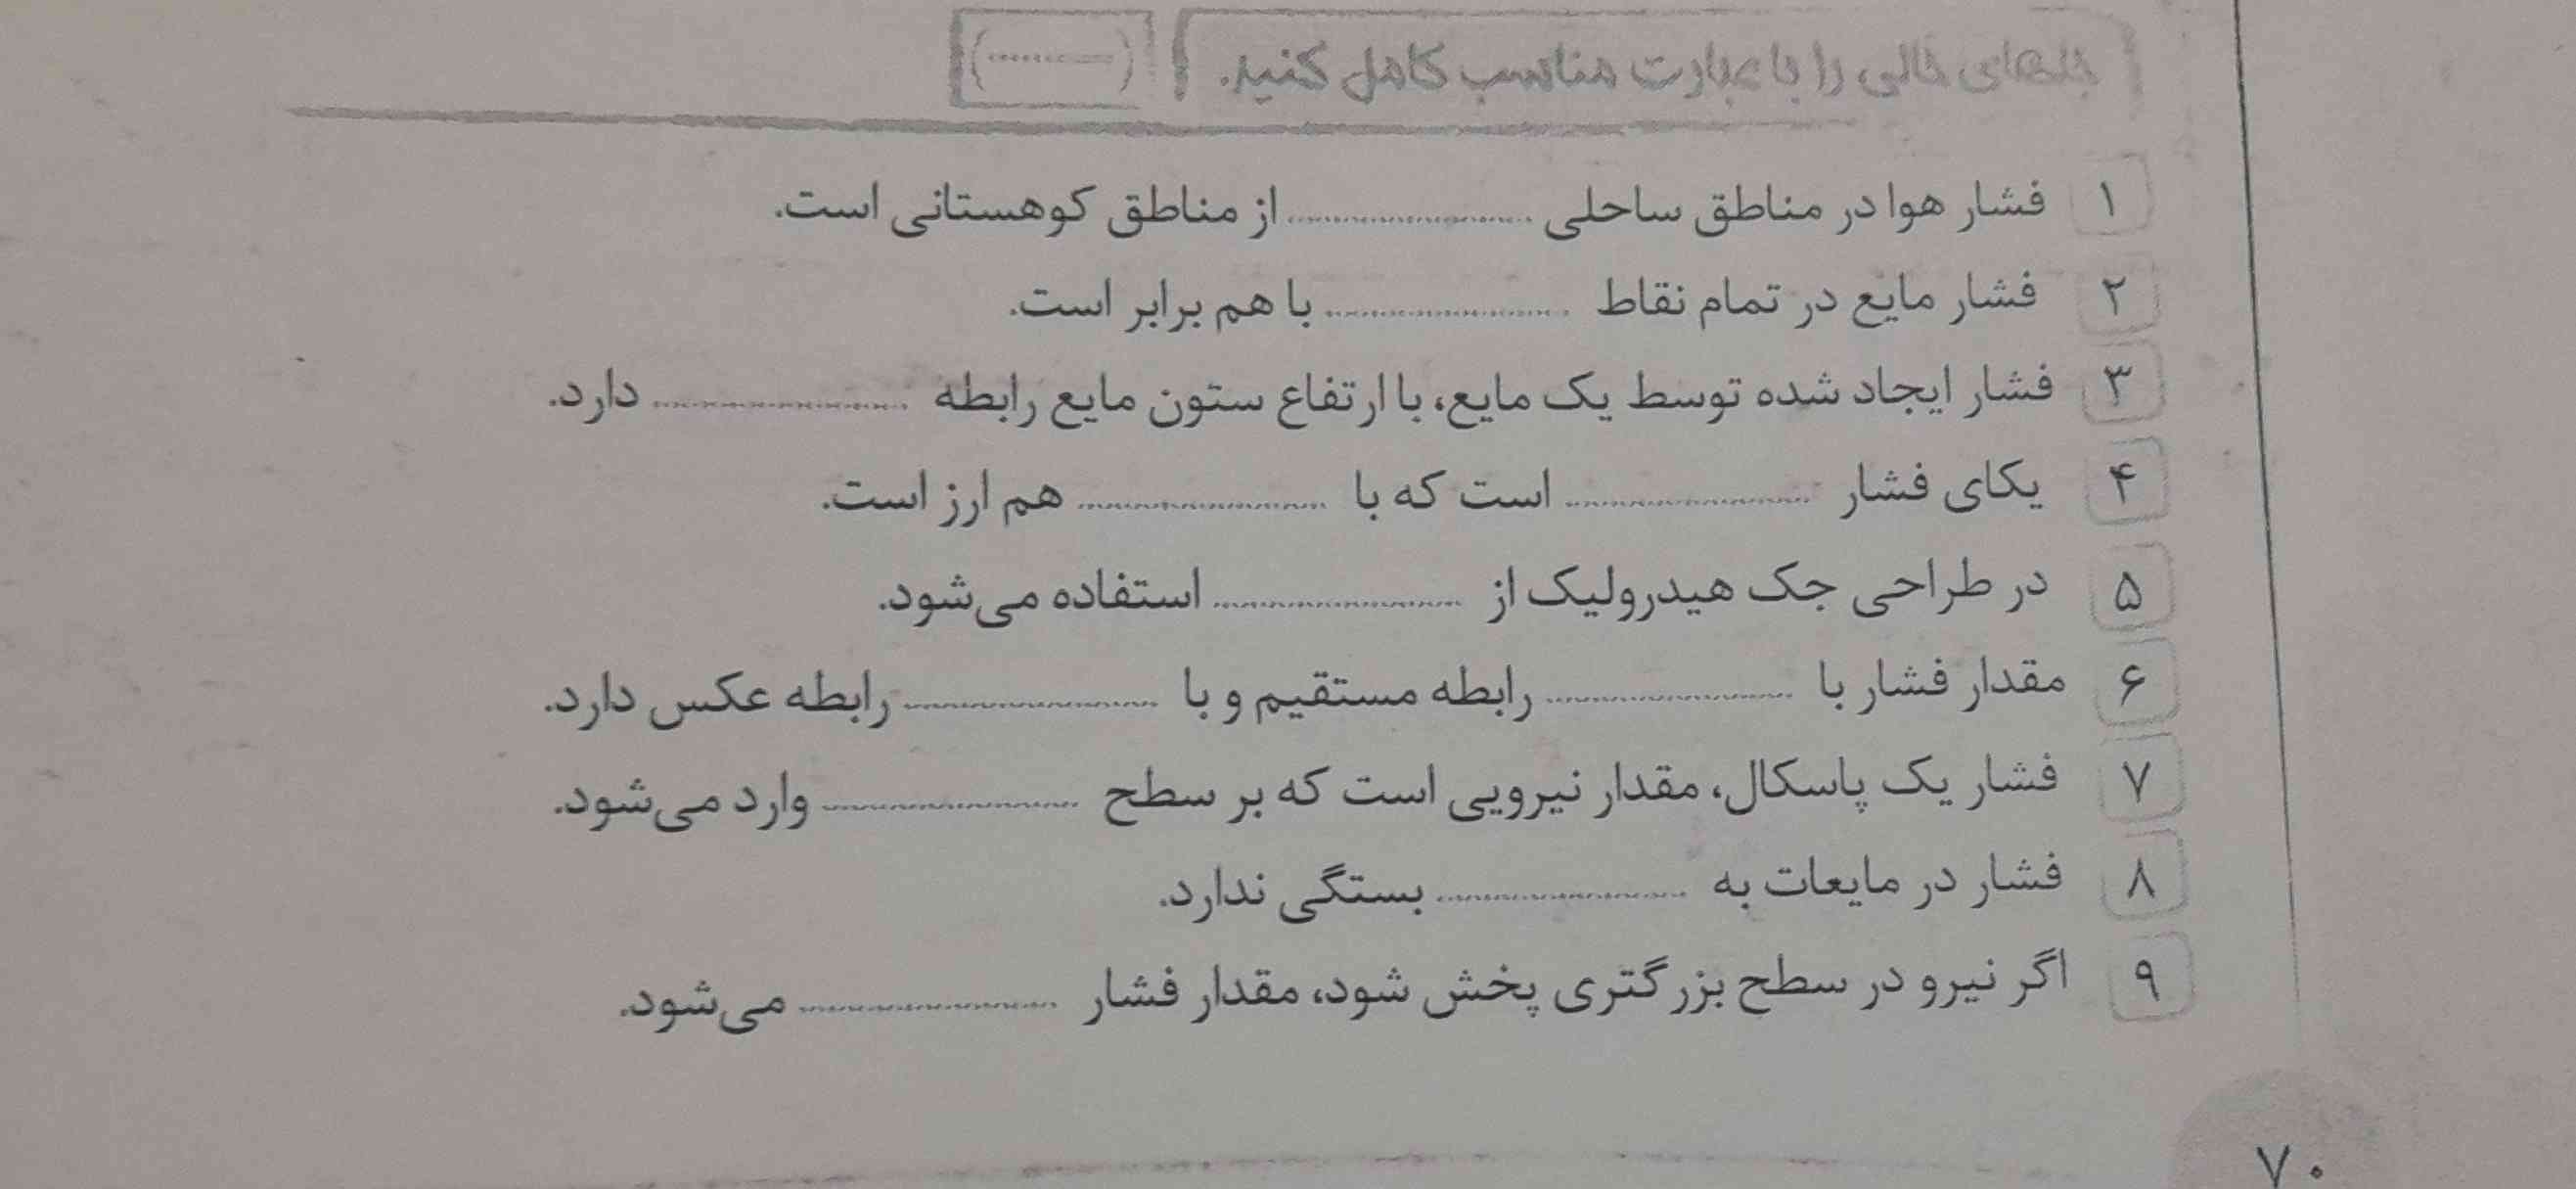 جاهای خالی را با عبارت مناسب کامل کنید. (............)
۱ فشار هوا در مناطق ساحلی ............ از مناطق کوهستانی است.
۲ فشار مایع در تمام نقاط ............ با هم برابر است.
۳ فشار ایجاد شده توسط یک مایع، با ارتفاع ستون مایع رابطه ............ دارد.
۴ یکای فشار ............ است که با ............ هم ارز است.
۵ در طراحی جک هیدرولیک از ............ استفاده می‌شود.
۶ مقدار فشار با ............ رابطه مستقیم و با ............ رابطه عکس دارد.
۷ فشار یک پاسکال، مقدار نیرویی است که بر سطح ............ وارد می‌شود.
۸ فشار در مایعات به ............ بستگی ندارد.
۹ اگر نیرو در سطح بزرگتری پخش شود، مقدار فشار ............ می‌شود.
۷۰